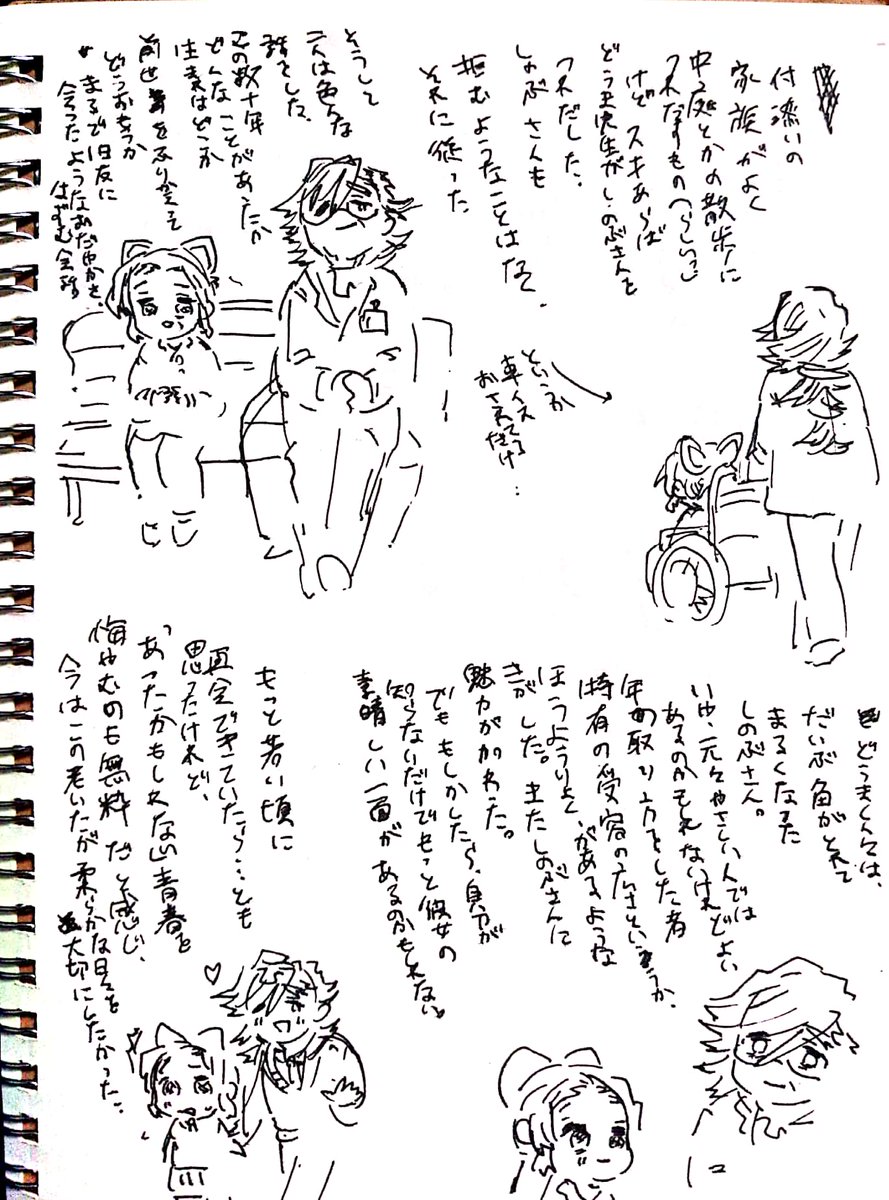 付添いの
家族がよく
中庭とかの散歩に
つれだすものへらしいっ
けどスキあらば
どう玉先生がしのぶさんを
つれだした。
しのぶさんも
拒むようなことはなく、
それに従った。
というか
車イス
おさえてる
だけ…
そうして
二人は色々な
話をした。
この数十年
どんなことがあったか
生まれはどこか
前世をふりかえって
どうおもうか
まるで旧友に
会ったようなおだやかさ
はずむ会話
どうまくんは、
だいぶ角がとれて
まるくなった
しのぶさん。
いや、元々やさしい人では
あるのかもしれないけれどよい
年の取り方をした者
特有の受容の広さというか、
ほうようりょくがあるような
きがした。またしのぶさんに
魅力がかわった。
でももしかしたら、自分が
知らないだけでもっと彼女の
素晴しい一面があるのかもしれない。
もっと若い頃に
再会できていたら…とも
思ったけれど、
あったかもしれない青春を
悔やむのも無粋だと感じ、
今はこの老いたが柔らかな日々を
大切にしたかった。